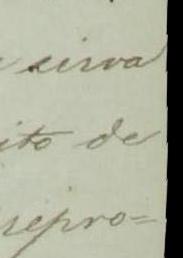 sirva
ito de
repro=